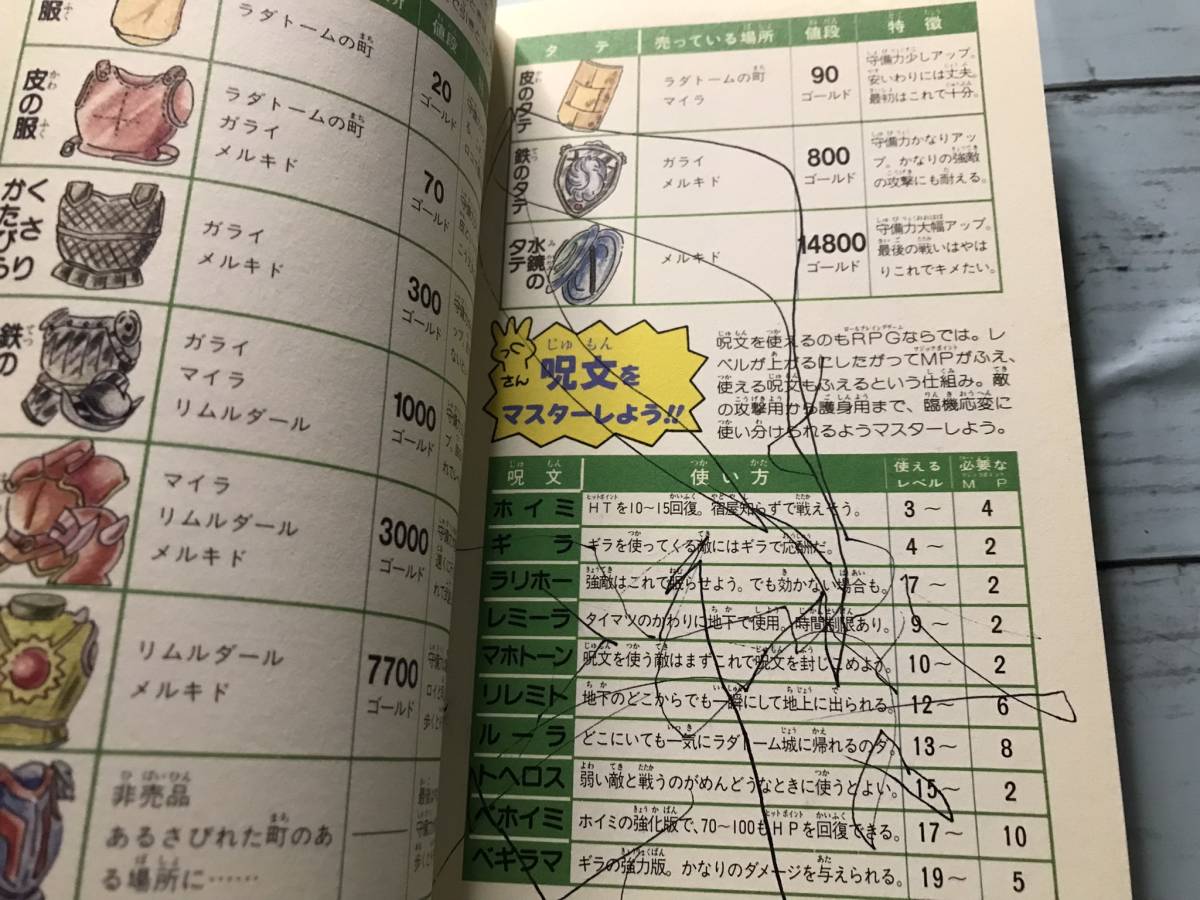 服
ラダトームの町
値段
20
ゴールド
皮の服
ラダトームの町
ガライ
メルキド
70
ゴールド
くさり
かたびら
ガライ
メルキド
300
ゴールド
鉄の
ガライ
マイラ
リムルダール
1000
ゴールド
マイラ
リムルダール
メルキド
3000
ゴールド
リムルダール
メルキド
7700
ゴールド
非売品
あるさびれた町のあ
る場所に……
タテ
売っている場所
値段
特徴
皮のタテ
ラダトームの町
マイラ
90
ゴールド
守備力少しアップ。
安いわりには丈夫。
最初はこれで十分。
鉄のタテ
ガライ
メルキド
800
ゴールド
守備力かなりアッ
プ。かなりの強敵
の攻撃にも耐える。
水鏡の
タテ
メルキド
14800
ゴールド
守備力大幅アップ。
最後の戦いはやは
りこれでキメたい。
呪文を
マスターしよう!!
呪文を使えるのもRPGならでは。レ
ベルが上がるにしたがってMPがふえ、
使える呪文もふえるという仕組み。敵
の攻撃用から護身用まで、臨機応変に
使い分けられるようマスターしよう。
呪文
使い方
使える
レベル
必要な
MP
ホイミ
HTを10～15回復。宿屋知らずで戦えそう。
3～
4
ギラ
ギラを使ってくる敵にはギラで応酬だ。
4～
2
ラリホー
強敵はこれで眠らせよう。でも効かない場合も。
7～
2
レミーラ
タイマツのかわりに地下で使用。時間制限あり。
9～
2
マホトーン
呪文を使う敵はまずこれで呪文を封じこめよう。
10～
2
リレミト
地下のどこからでも一瞬にして地上に出られる。
12～
6
ルーラ
どこにいても一気にラダトーム城に帰れるのダ。
13～
8
トヘロス
弱い敵と戦うのがめんどうなときに使うとよい。
15～
2
ベホイミ
ホイミの強化版で、70～100もHPを回復できる。
17～
10
ベギラマ
ギラの強力版。かなりのダメージを与えられる。
19～
5